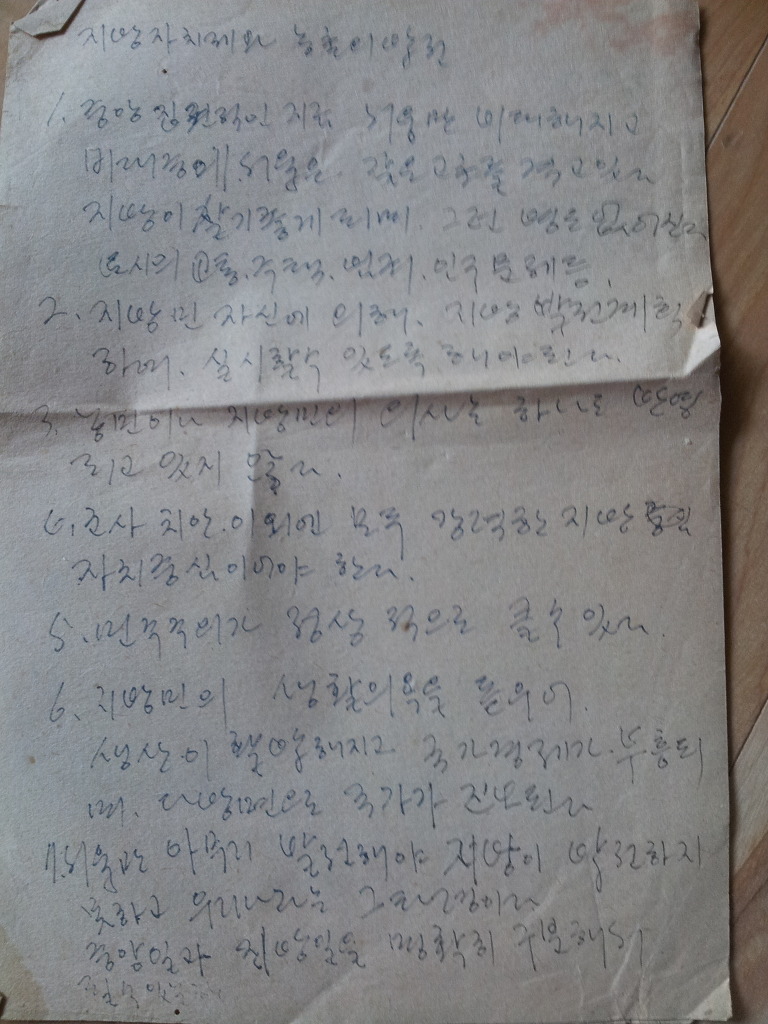 지방자치제와 농촌의발전
1. 중앙 집권적인 지금 서울만 비대해지고
비대중에 서울은 갖은 고학을 격고 있다
지방이 활기롭게 되며. 그런 병은 없어진다
도시의 교통. 주택. 범죄. 인구 문제등.
2. 지방민 자신에 의해. 지방 발전계획
하며. 실시할수 있도록 해야 된다.
3. 농민이나 지방민의 의사는 하나도 반영
되고 있지 않다.
치안. 이외엔 모두 강력한 지방
자치중심이어야 한다.
5. 민주주의가 정상적으로 클수 있다.
6. 지방민의 생활의욕을 돋우어.
생산이 활발해지고 국가경제가 부흥되
며. 다방면으로 국가가 진보된다
7. 서울만 아무리 발전해야 지방이 발전하지
못하고 우리나라는 그
중앙일과 지방일을 명확히 구분해서.